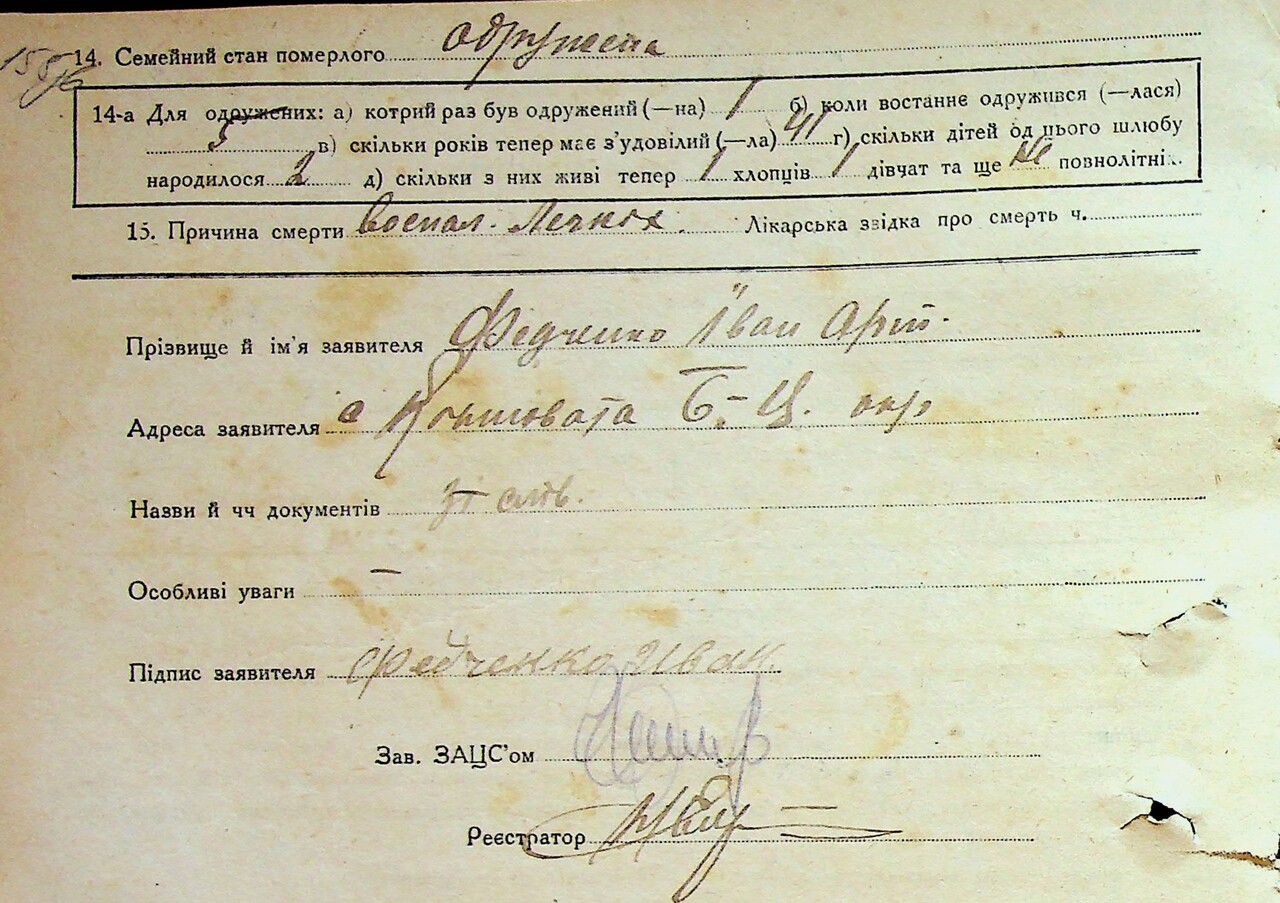 14. Семейний стан померлого одружена
14-а Для одружених: а) котрий раз був одружений (—на) 1 б) коли востаннє одружився (—лася)
5 в) скільки років тепер має з'удовілий (—ла) 41 г) скільки дітей од цього шлюбу
народилося 2 д) скільки з них живі тепер 1 хлопців 1 дівчат та ще не повнолітні
15. Причина смерти воспал. Легких. Лікарська звідка про смерть ч.
Прізвище й ім'я заявителя Федченко Іван
Адреса заявителя с Б.-Ц. окр
Назви й чч документів зі слів.
Особливі уваги —
Підпис заявителя Федченко Иван.
Зав. ЗАЦС'ом
Реєстратор